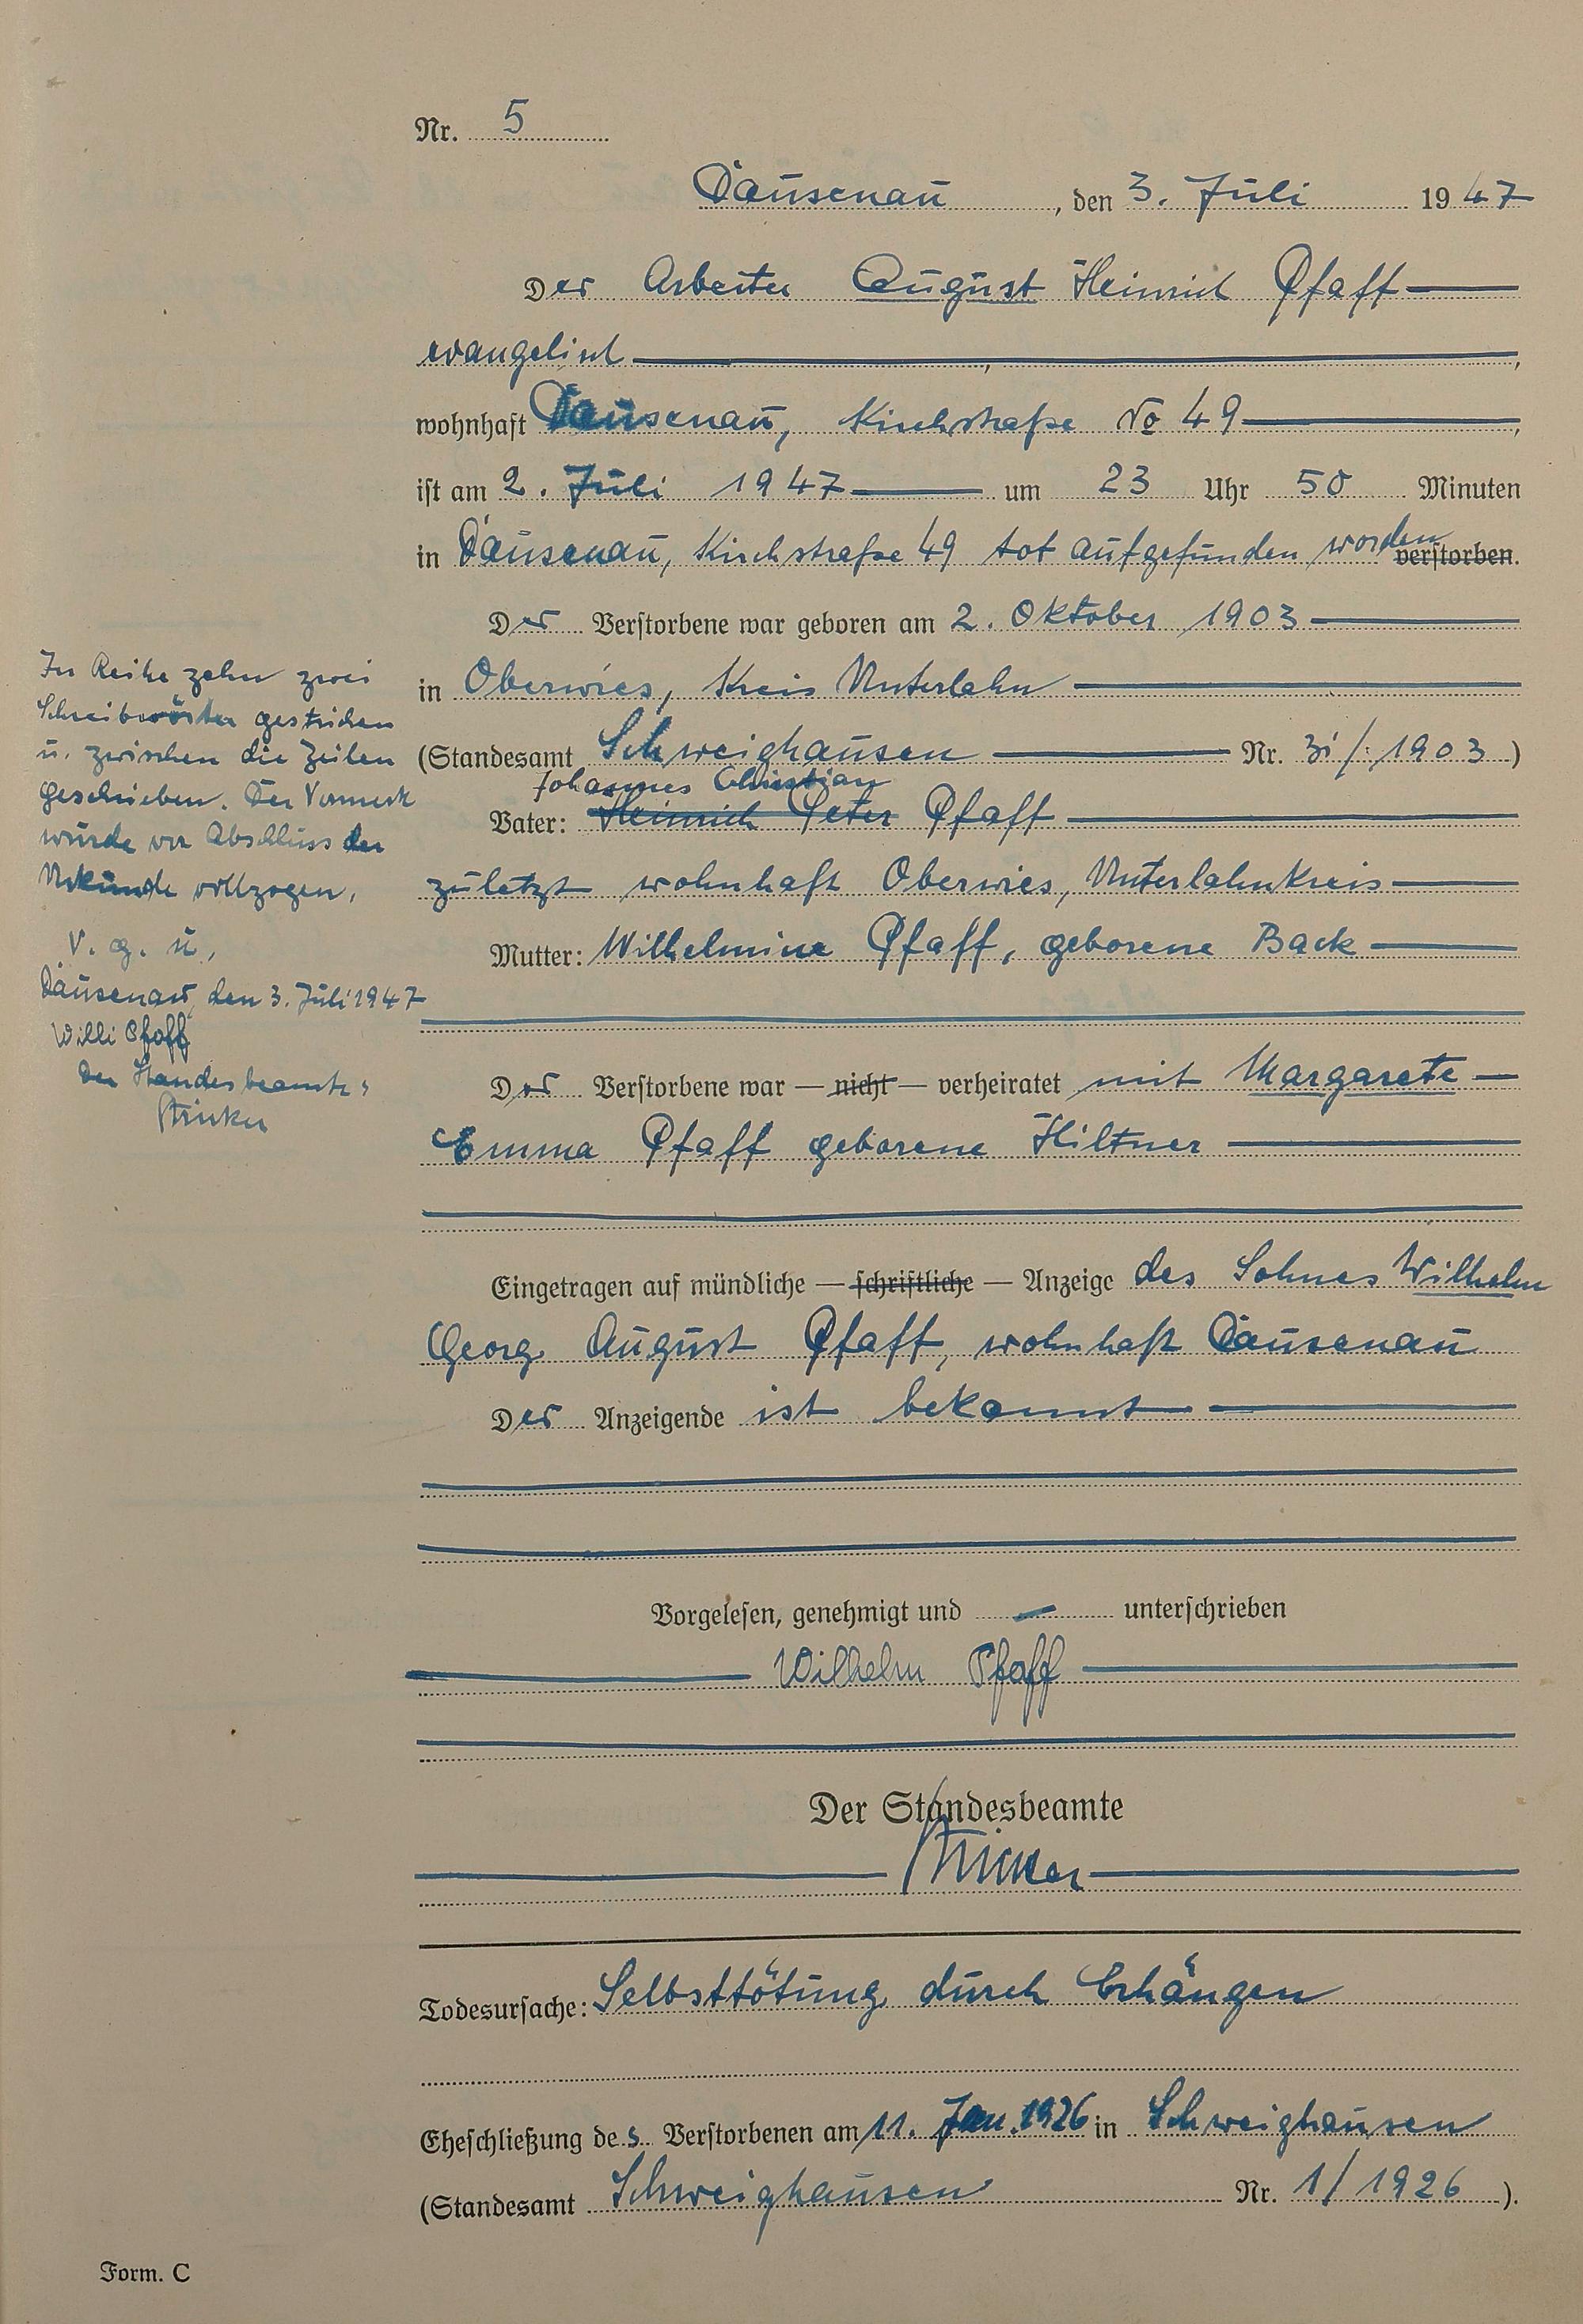 Nr. 5
Dausenau, den 3. Juli 1947
Der Arbeiter August Heinrich Pfaff
evangelisch,
wohnhaft Dausenau, Kirchstraße No 49,
ist am 2. Juli 1947 um 23 Uhr 50 Minuten
in Dausenau, Kirchstraße 49 tot aufgefunden worden verstorben.
Der Verstorbene war geboren am 2. Oktober 1903
in Oberwies, Kreis Unterlahn
(Standesamt Schweighausen Nr. 31/1903)
Johannes Christian
Vater: Heinrich Peter Pfaff
zuletzt wohnhaft Oberwies, Unterlahnkreis
Mutter: Wilhelmine Pfaff, geborene Back
Der Verstorbene war — nicht — verheiratet mit Margarete
Emma Pfaff geborene Hiltner
Eingetragen auf mündliche — schriftliche — Anzeige des Sohnes Wilhelm
Georg August Pfaff, wohnhaft Dausenau
Der Anzeigende ist bekannt
Vorgelesen, genehmigt und — unterschrieben
Wilhelm Pfaff
Der Standesbeamte
Todesursache: Selbsttötung durch Erhängen
Eheschließung des Verstorbenen am 11. Jan. 1926 in Schweighausen
(Standesamt Schweighausen Nr. 1/1926).
In Reihe zehn zwei
Schreibwörter gestrichen
u. zwischen die Zeilen
geschrieben. Der Vermerk
wurde vor Abschluss der
Urkunde vollzogen.
V. g. u.
Dausenau, den 3. Juli 1947
Willi Pfaff
Der Standesbeamte:
Form. C